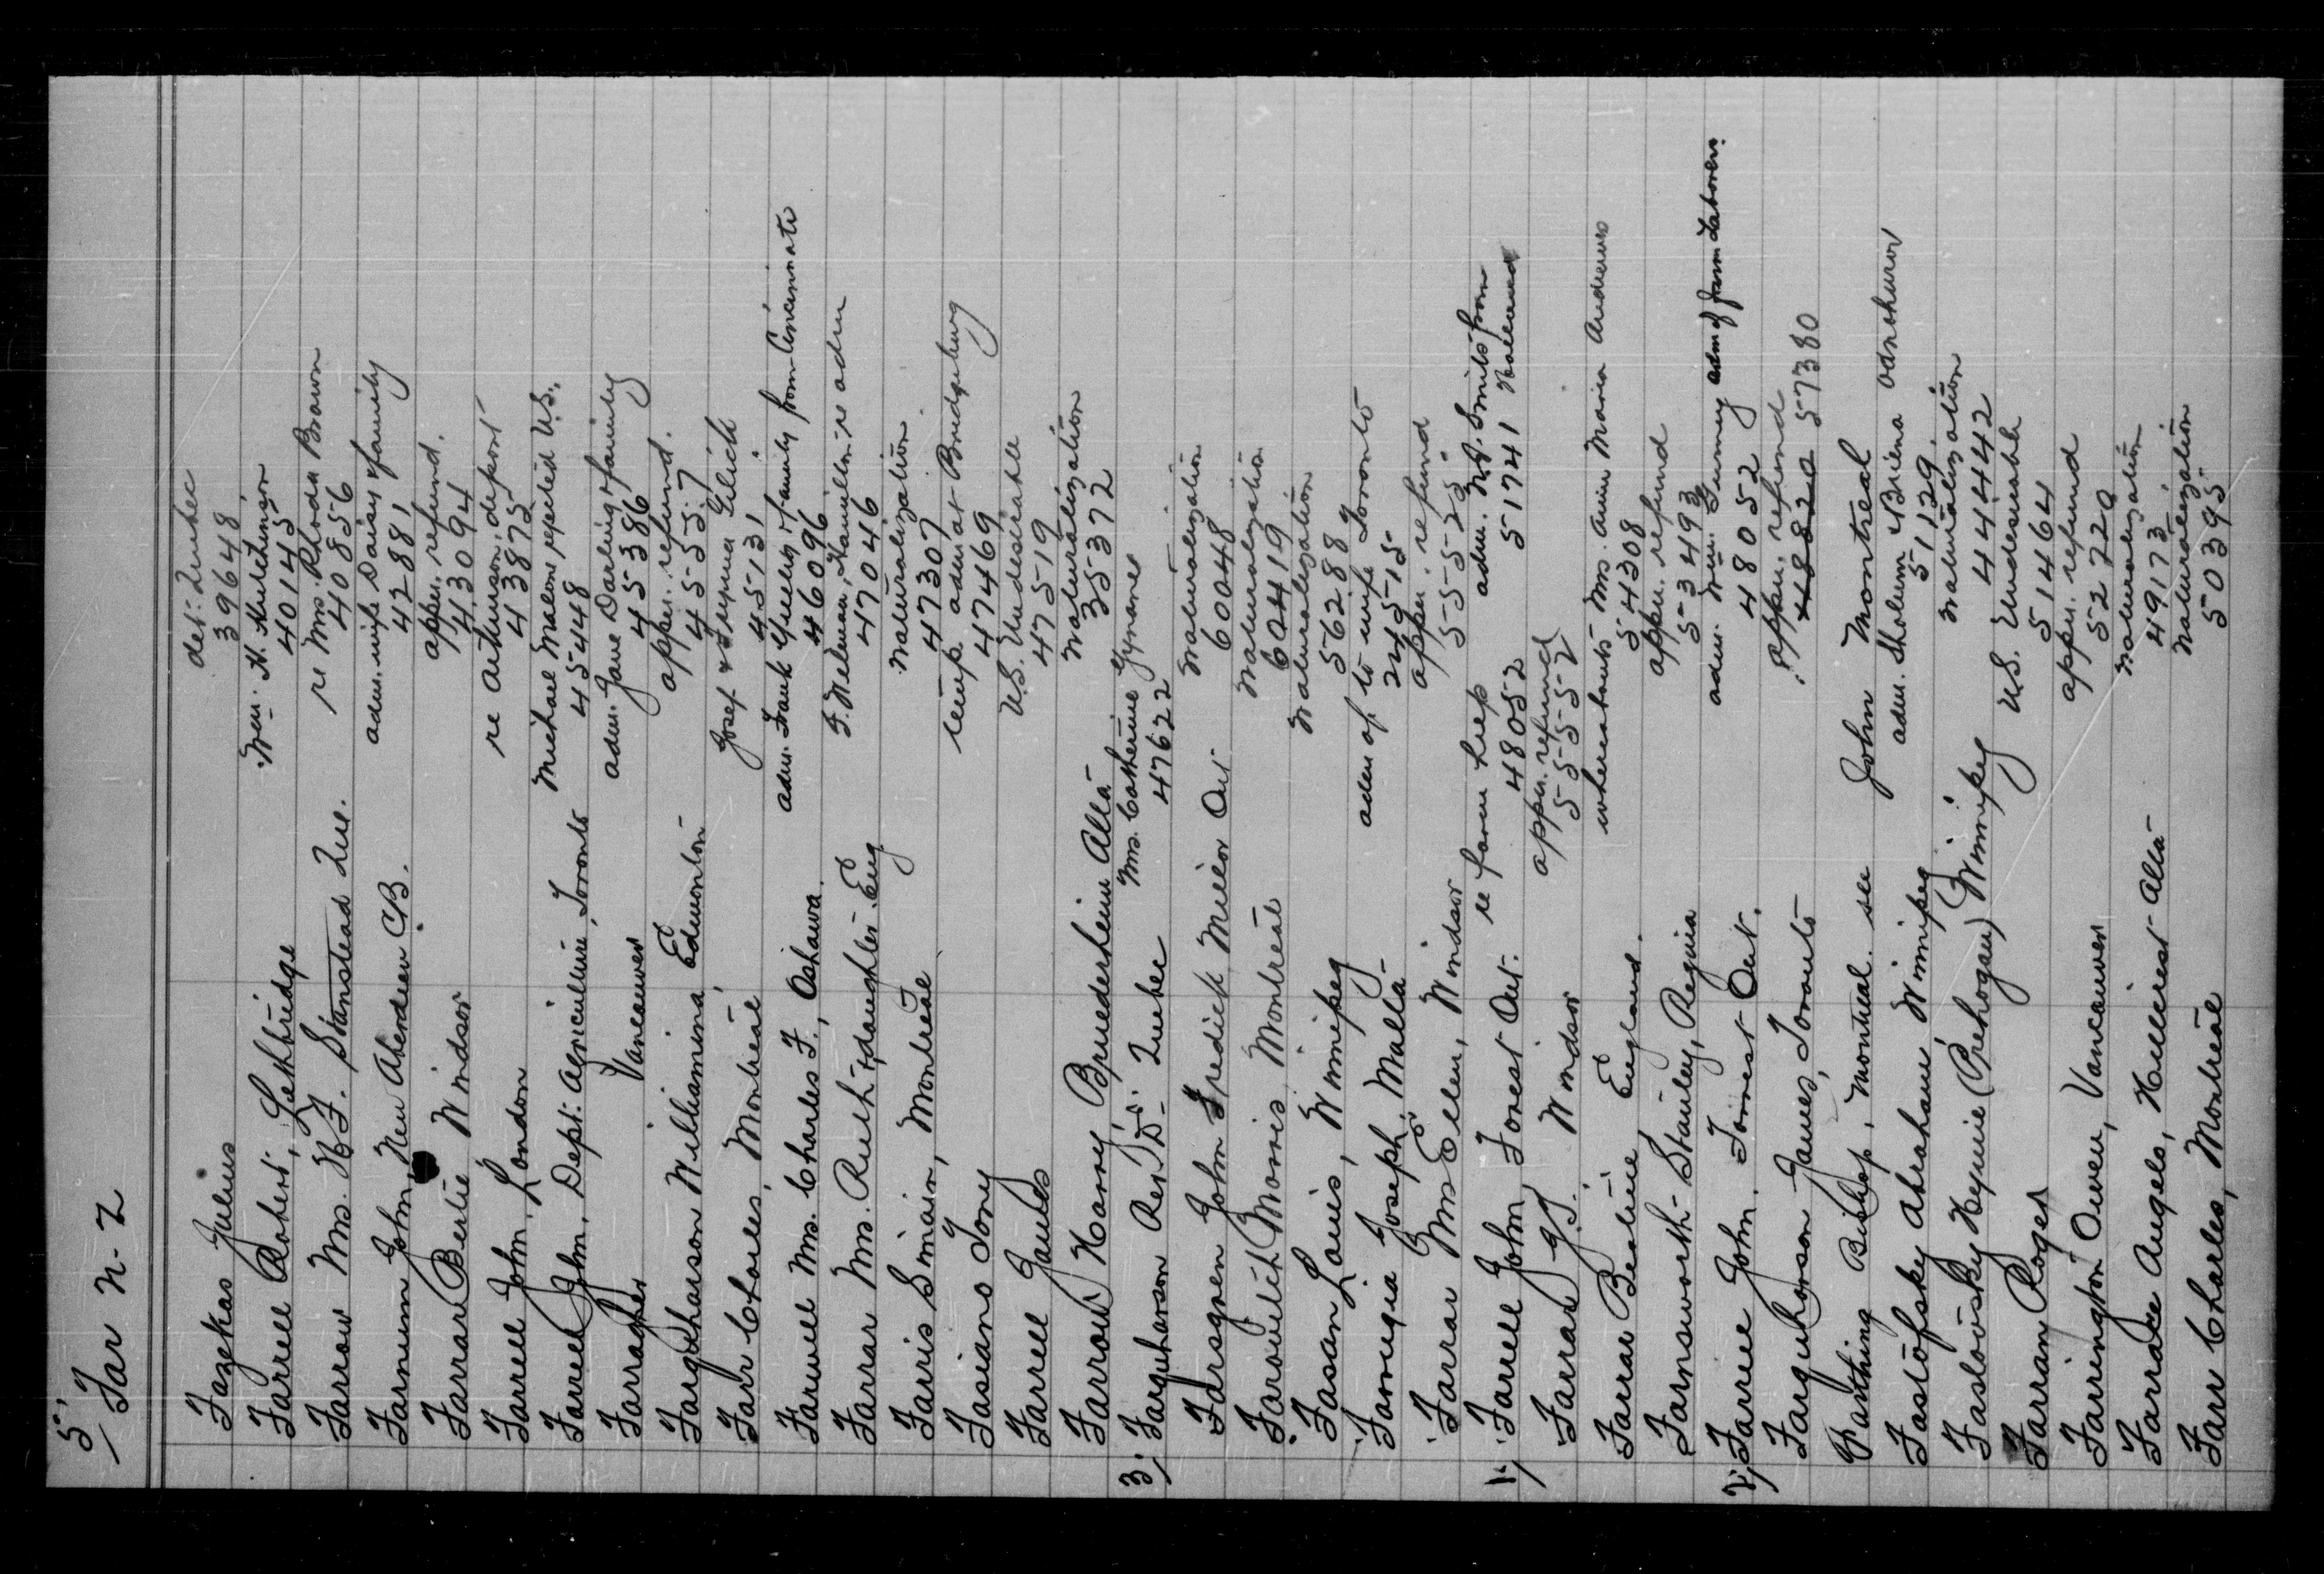 5,
Far N-Z
Fazekas Julius det. Quebec
39648
Farrell Robert, Lethbridge Wm. H. Hutchinson
40145
Farrow Mrs. H.F. Stanstead Que. re Mrs. Rhoda Brown
40856
Farnum John, New Aberdeen C.B. adm. wife Daisy & family
42881
Farrar Bertie Windsor appn. refund.
43094
Farrell John, London re Atkinson, deport
43875
Farrell John, Dept. Agriculture, Toronto Michael Malone rejected U.S.
45448
Farragher Vancouver adm. Jane Darling & family
45386
Farquharson Williamina, Edmonton appn. refund.
45557
Farr Charles, Montreal Josef &
45131
Farwell Mrs. Charles F., Oshawa. adm. Frank & family from Cincinnati
46096
Farrar Mrs. Ruth & daughter Eng F. Nelman, Hamilton re adm
47046
Farris Smain, Montreal Naturalization
47307
Fasiano Tony temp. adm at Bridgeburg
47469
Farrell James U.S. Undesirable
47519
Farrow Harry, Bruederheim Alta Naturalization
35372
3, Farquharson Rev. D. Quebec Mrs. Catherine
47622
Farsgren John Fredick Ont Naturalization
60048
Farowitch Morris Montreal Naturalization
60419
Fasan Louis, Winnipeg Naturalization
56288
Joseph, Malta adm of to wife Toronto
2451
Farrar Mrs Ellen, Windsor appn. refund
55525
1, Farrell John, Forest Ont. re farm help adm. from
48052 51741
Farrar J.J. Windsor appn. refund
55552
Farrar Beatrice, England. whereabouts Mrs. Annie Maria Andrews
54308
Farnsworth-Stanley, Regina appn. refund
53493
2, Farrell John, Forrest Ont. adm. Wm. adm of Farm Laborers
48052
Farquharson James, Toronto appn. refund
48820 57380
Farthing Bishop, Montreal. see John Montreal
Fastofsky Abraham, Winnipeg adm. Sholem & Briena
51129
Faslovsky Heymie (Prehogan) Winnipeg Naturalization
444442
Farran Roger U.S. Undesirable
51464
Farrington Owen, Vancouver appn. refund
52220
Angelo, Hillcrest Alta Naturalization
49173
Farr Charles, Montreal Naturalization
50395